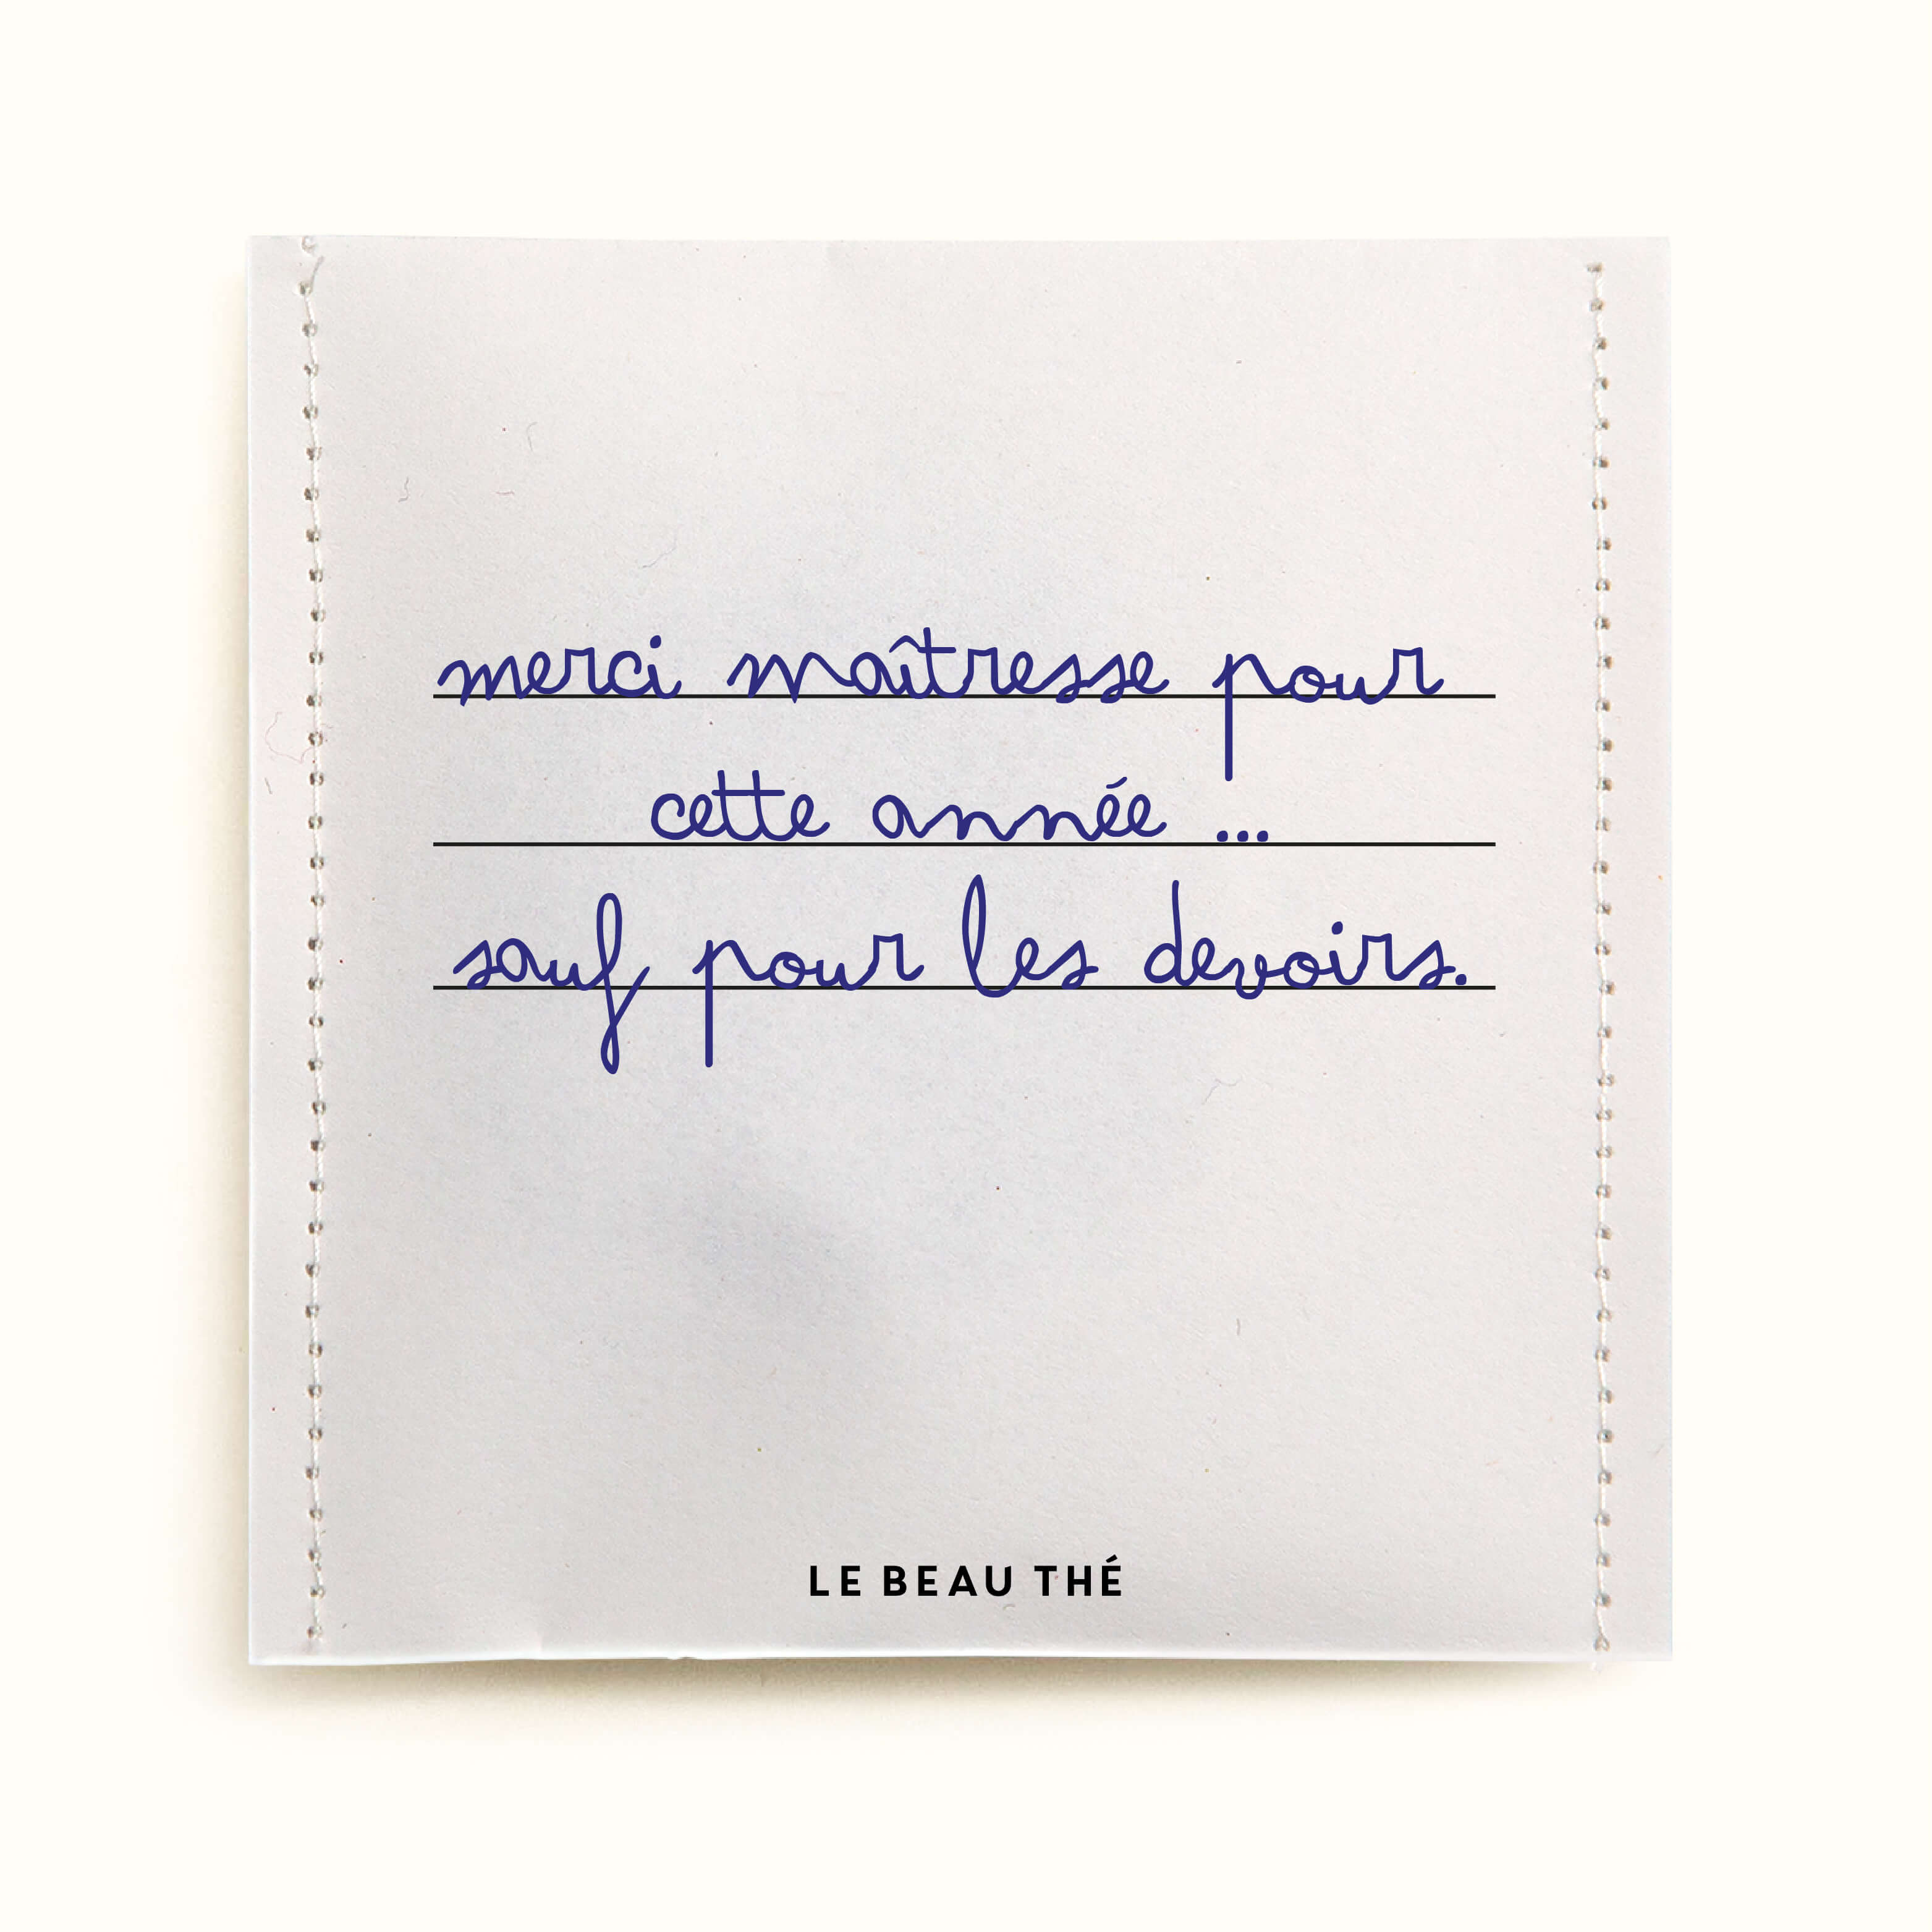 merci maîtresse pour
cette année ...
sauf pour les devoirs.
LE BEAU THÉ